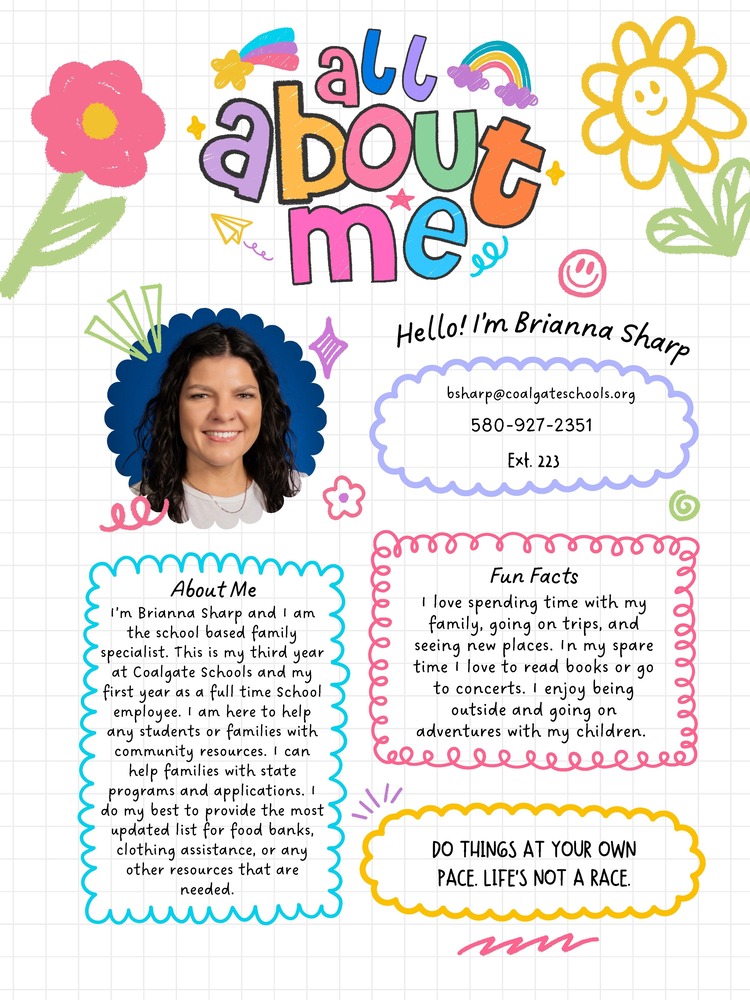 all
about
me
Hello! I'm Brianna Sharp
bsharp@coalgateschools.org
580-927-2351
Ext. 223
About Me
I'm Brianna Sharp and I am
the school based family
specialist. This is my third year
at Coalgate Schools and my
first year as a full time School
employee. I am here to help
any students or families with
community resources. I can
help families with state
programs and applications. I
do my best to provide the most
updated list for food banks,
clothing assistance, or any
other resources that are
needed.
Fun Facts
I love spending time with my
family, going on trips, and
seeing new places. In my spare
time I love to read books or go
to concerts. I enjoy being
outside and going on
adventures with my children.
DO THINGS AT YOUR OWN
PACE. LIFE'S NOT A RACE.